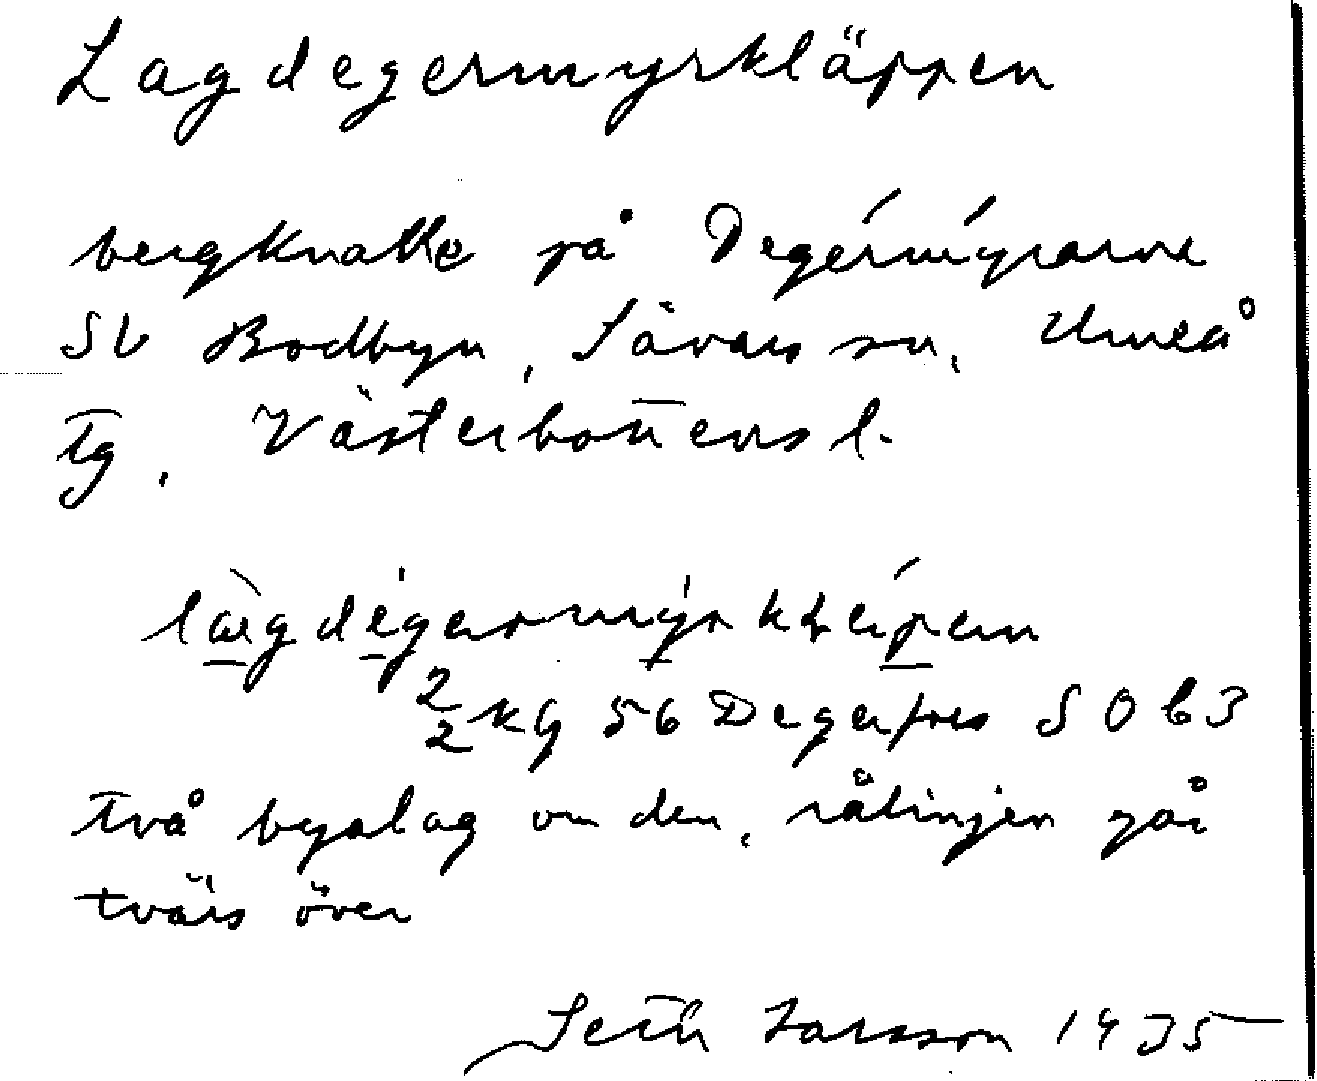 Lagdegermyrkläppen
bergknatte på Degérmýrarne
SV Bodbyn, Sävars sn, Umeå
tg, Västerbottens l.
2/2 kg 56 Degerfors SO b3
två byalag om den, rålinjen går
tvärs över
Seth Larsson 1935